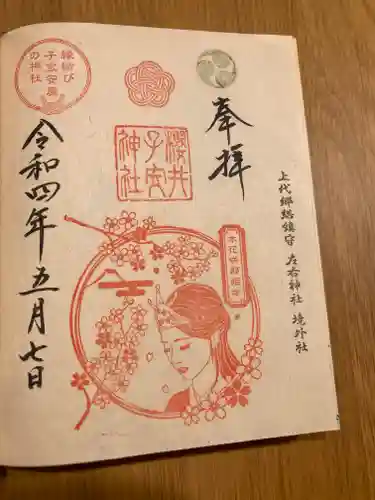 上代郷総鎮守 左右神社 境外社
奉拝
櫻井
子安
神社
木花咲耶姫命
縁結び
子宝安産
の神社
令和四年五月七日